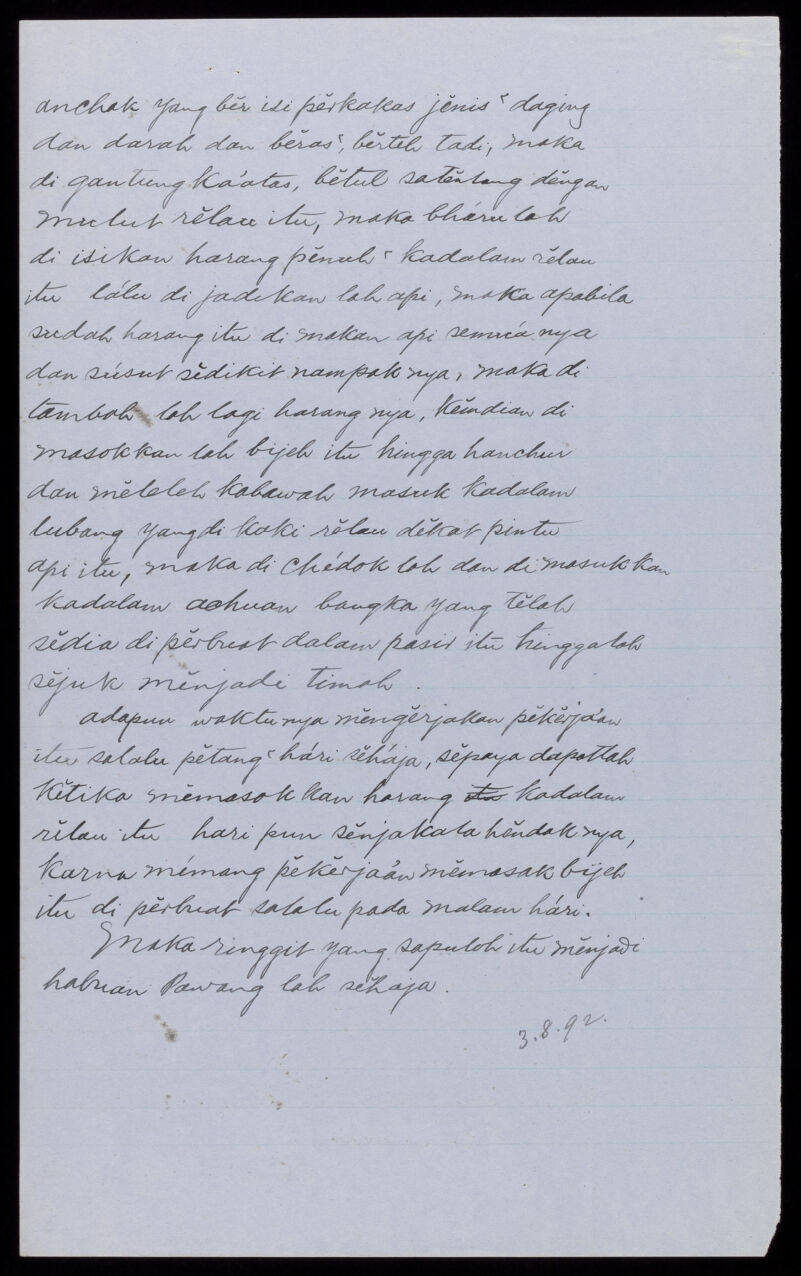 anchak yang bĕr isi pĕrkakas jĕnis ʿ daging
dan darah dan bĕras ʿ, bĕrteh tadi, maka
di gantung ka'atas, bĕtul satĕntang dĕngan
mulut rĕlau itu, maka bháru lah
di isikan harang pĕnuh ʿ kadalam rĕlau
itu lálu di jadikan lah api, maka apabila
sudah harang itu di makan api semuá nya
dan súsut sĕdikit nampak nya, maka di
tambah lah lagi harang nya, kĕmdian di
masokkan lah bijeh itu hingga hanchur
dan mĕleleh kabawah masuk kadalam
lubang yang di kaki rĕlau dĕkat pintu
api itu, maka di chédok lah dan di masukkan
kadalam achuan bangka yang tĕlah
sĕdia di pĕrbuat dalam pasir itu hinggalah
sĕjuk mĕnjadi timah.
adapun waktu nya mĕngĕrjakan pĕkĕrja'an
itu salalu pĕtang ʿ hári sĕhája, sĕpaya dapatlah
kĕtika mĕmasokkan harang itu kadalam
rĕlau itu hari pun sĕnjakala hĕndak nya,
karna mémang pĕkĕrja'an mĕmasak bijeh
itu di pĕrbuat salalu pada malam hári.
Maka ringgit yang sapuloh itu mĕnjadi
habuan Pawang lah sĕhaja.
3.8.92.